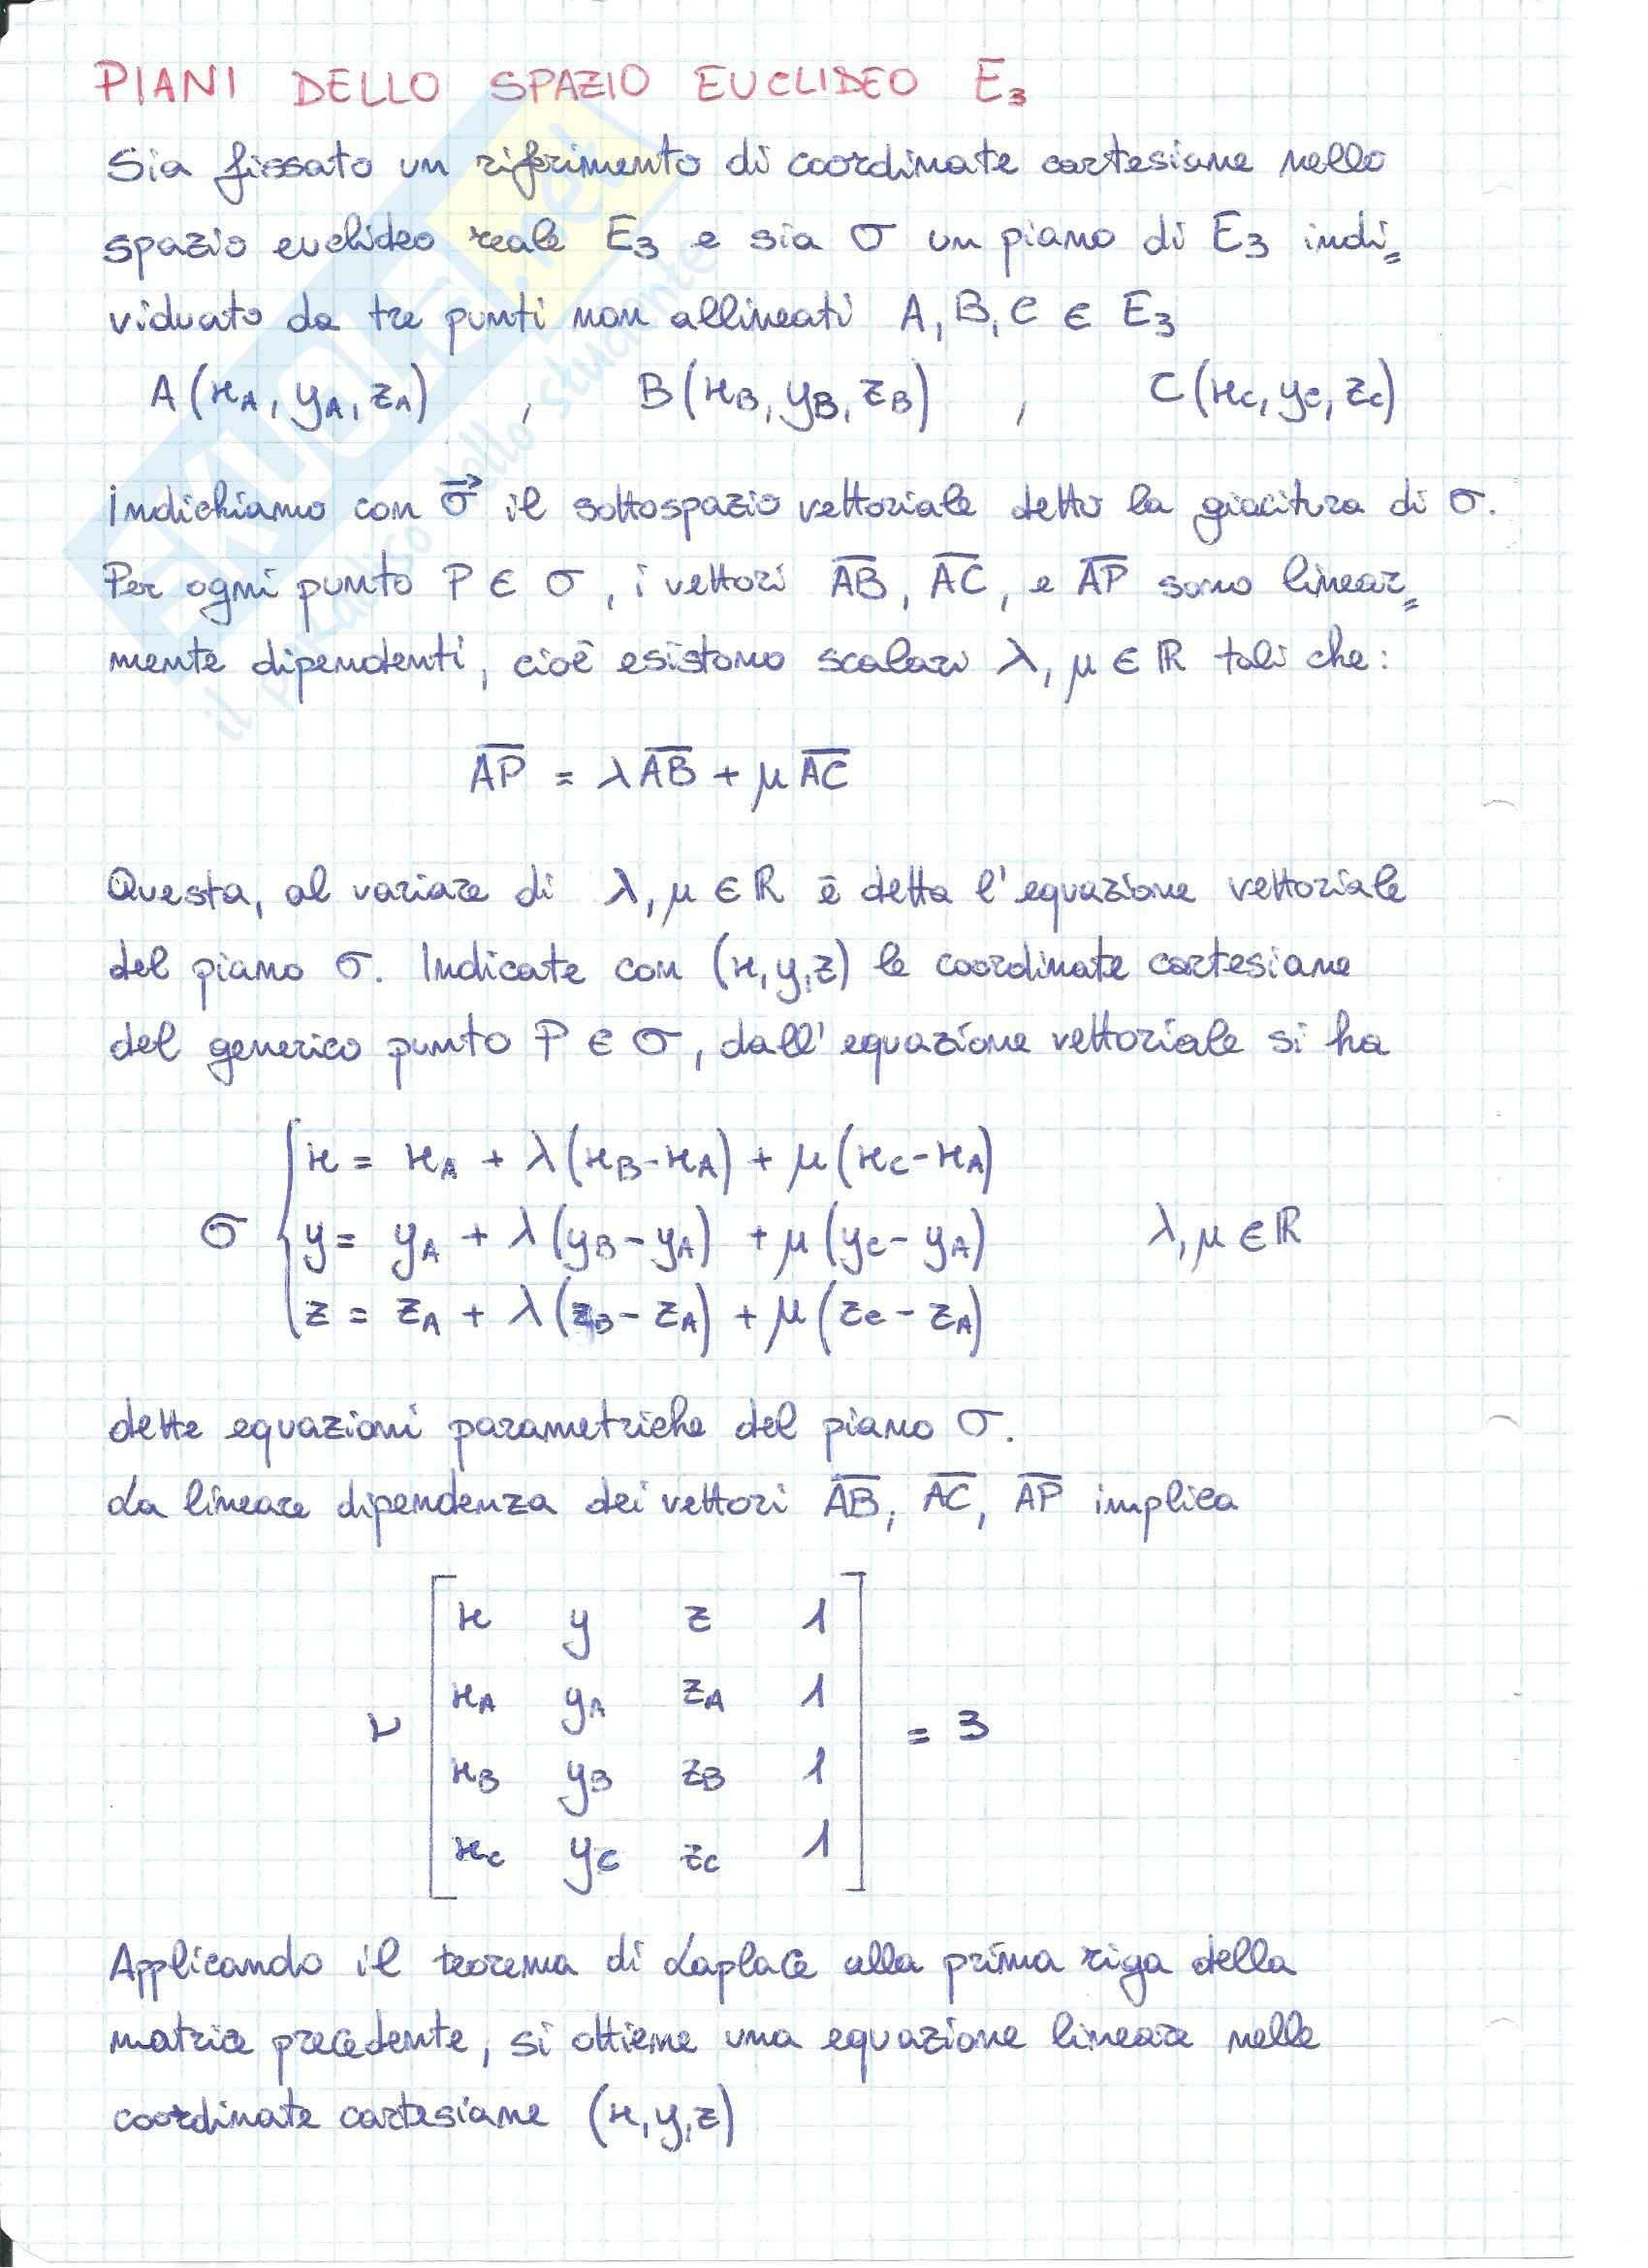 PIANI DELLO SPAZIO EUCLIDEO E₃
Sia fissato un riferimento di coordinate cartesiane nello
spazio euclideo reale E₃ e sia σ un piano di E₃ indi=
viduato da tre punti non allineati A, B, C ∈ E₃
A(x_A, y_A, z_A) , B(x_B, y_B, z_B) , C(x_C, y_C, z_C)
Indichiamo con σ⃗ il sottospazio vettoriale detto la giacitura di σ.
Per ogni punto P ∈ σ, i vettori A̅B̅, A̅C̅, e A̅P̅ sono linear=
mente dipendenti, cioè esistono scalari λ, μ ∈ ℝ tali che:
A̅P̅ = λA̅B̅ + μA̅C̅
Questa, al variare di λ, μ ∈ ℝ è detta l'equazione vettoriale
del piano σ. Indicate con (x, y, z) le coordinate cartesiane
del generico punto P ∈ σ, dall'equazione vettoriale si ha
x = x_A + λ(x_B - x_A) + μ(x_C - x_A)
σ { y = y_A + λ(y_B - y_A) + μ(y_C - y_A) λ, μ ∈ ℝ
z = z_A + λ(z_B - z_A) + μ(z_C - z_A)
dette equazioni parametriche del piano σ.
La lineare dipendenza dei vettori A̅B̅, A̅C̅, A̅P̅ implica
x y z 1
x_A y_A z_A 1
r = 3
x_B y_B z_B 1
x_C y_C z_C 1
Applicando il teorema di Laplace alla prima riga della
matrice precedente, si ottiene una equazione lineare nelle
coordinate cartesiane (x, y, z)
SKUOLA.net
il paradiso dello studente